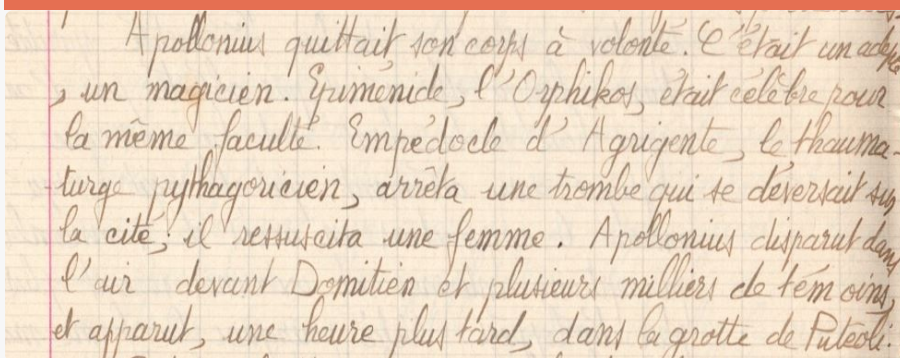 Apollonius quittait son corps à volonté. C'était un adepte
, un magicien. Epiménide, l'Orphikos, était célèbre pour
la même faculté. Empédocle d'Agrigente, le thauma-
turge pythagoricien, arrêta une trombe qui se déversait sur
la cité; il ressuscita une femme. Apollonius disparut dans
l'air devant Domitien et plusieurs milliers de témoins,
et apparut, une heure plus tard, dans la grotte de Putéoli.